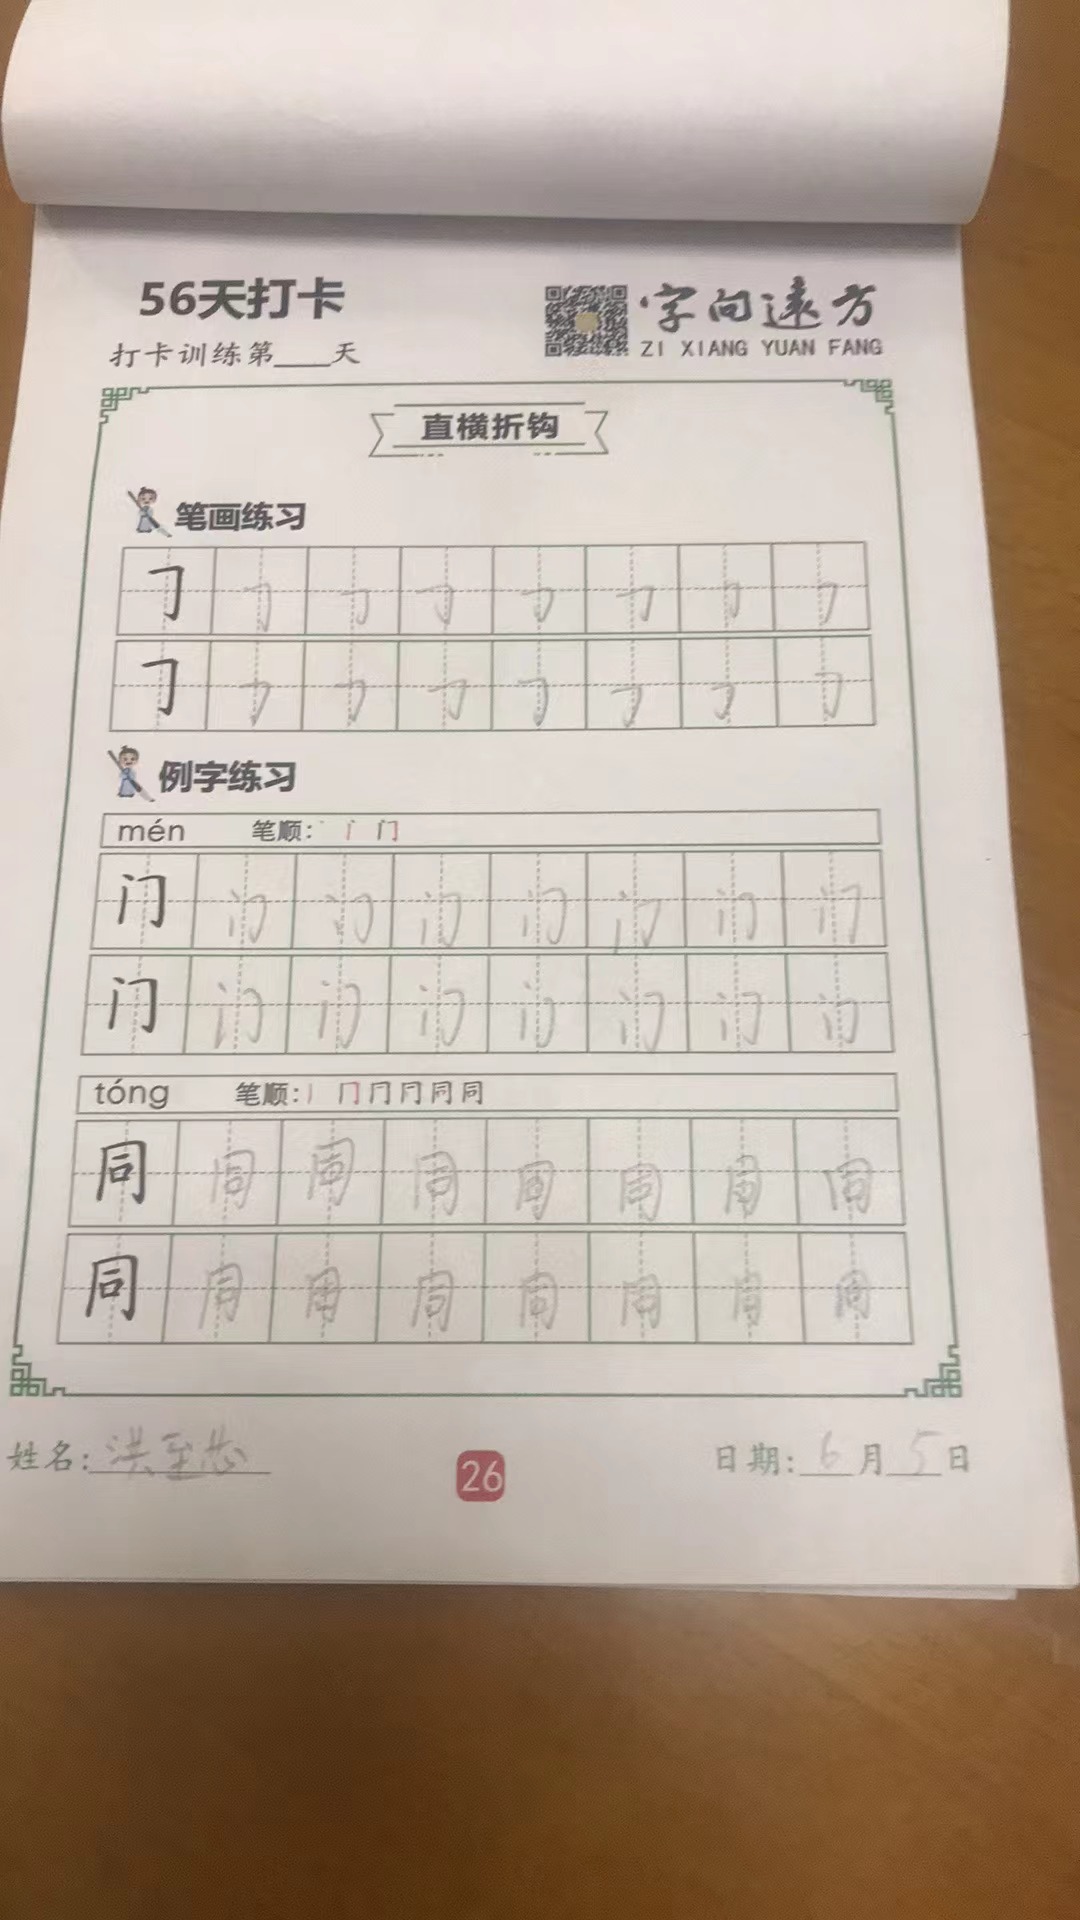 56天打卡
字向远方
打卡训练第___天
ZI XIANG YUAN FANG
直横折钩
笔画练习
𠃌 𠃌 𠃌 𠃌 𠃌 𠃌 𠃌 𠃌
𠃌 𠃌 𠃌 𠃌 𠃌 𠃌 𠃌 𠃌
例字练习
mén 笔顺: 丶 门
门 门 门 门 门 门 门 门
门 门 门 门 门 门 门 门
tóng 笔顺: 丨 冂 冂 同 同
同 同 同 同 同 同 同 同
同 同 同 同 同 同 同 同
姓名: 洪至芯
26
日期: 6月5日